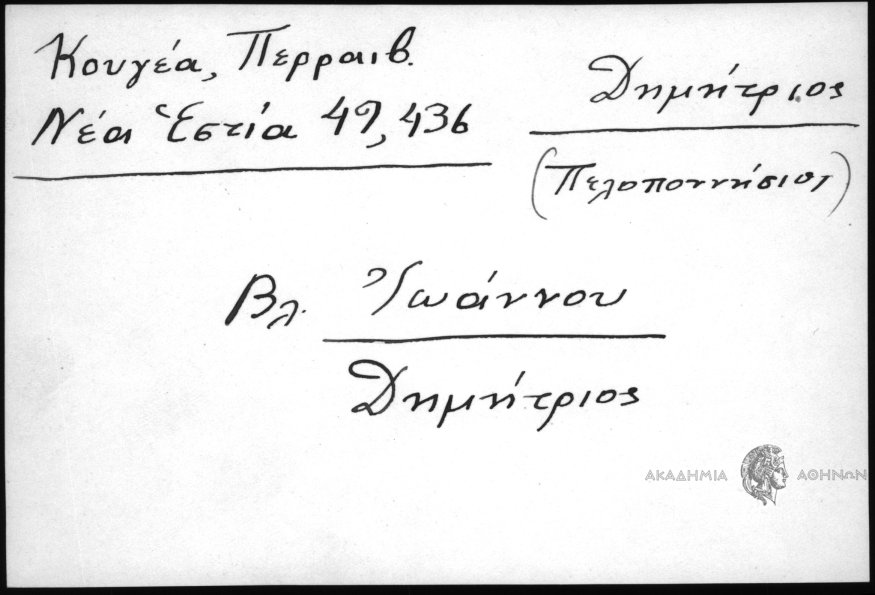 Κουγέα, Περραιβ.
Νέα Ἑστία 49, 436
Δημήτριος
(Πελοποννήσιος)
Βλ. Ἰωάννου
Δημήτριος
ΑΚΑΔΗΜΙΑ ΑΘΗΝΩΝ